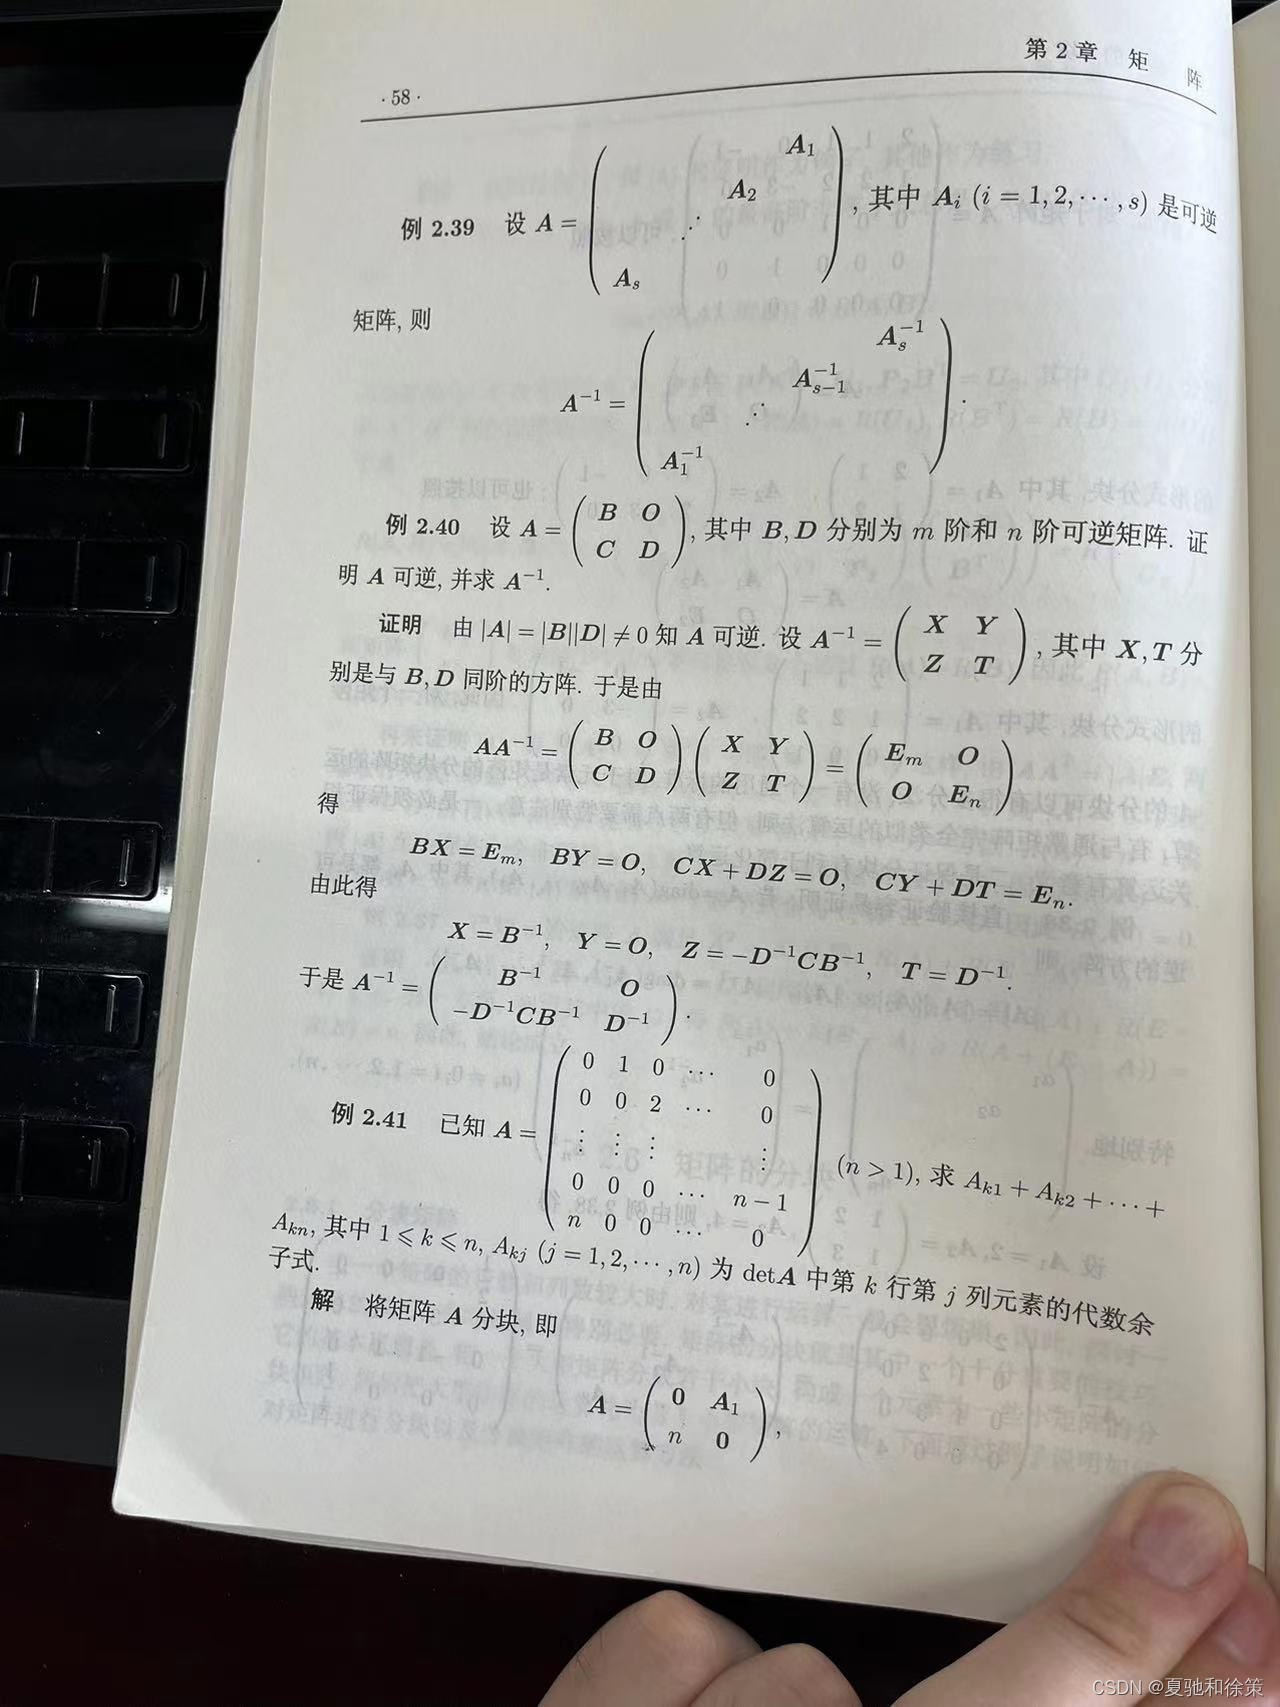 第 2 章 矩 阵
· 58 ·
例 2.39 设 A = \begin{pmatrix} & & & A_1 \\ & & A_2 & \\ & ⋰ & & \\ A_s & & & \end{pmatrix}, 其中 A_i (i = 1, 2, ⋯, s) 是可逆
矩阵, 则
A^{-1} = \begin{pmatrix} & & & A_s^{-1} \\ & & A_{s-1}^{-1} & \\ & ⋰ & & \\ A_1^{-1} & & & \end{pmatrix}.
例 2.40 设 A = \begin{pmatrix} B & O \\ C & D \end{pmatrix}, 其中 B, D 分别为 m 阶和 n 阶可逆矩阵. 证
明 A 可逆, 并求 A^{-1}.
证明 由 |A| = |B||D| ≠ 0 知 A 可逆. 设 A^{-1} = \begin{pmatrix} X & Y \\ Z & T \end{pmatrix}, 其中 X, T 分
别是与 B, D 同阶的方阵. 于是由
AA^{-1} = \begin{pmatrix} B & O \\ C & D \end{pmatrix} \begin{pmatrix} X & Y \\ Z & T \end{pmatrix} = \begin{pmatrix} E_m & O \\ O & E_n \end{pmatrix}
得
BX = E_m, BY = O, CX + DZ = O, CY + DT = E_n.
由此得
X = B^{-1}, Y = O, Z = -D^{-1}CB^{-1}, T = D^{-1}.
于是 A^{-1} = \begin{pmatrix} B^{-1} & O \\ -D^{-1}CB^{-1} & D^{-1} \end{pmatrix}.
例 2.41 已知 A = \begin{pmatrix} 0 & 1 & 0 & ⋯ & 0 \\ 0 & 0 & 2 & ⋯ & 0 \\ ⋮ & ⋮ & ⋮ & & ⋮ \\ 0 & 0 & 0 & ⋯ & n-1 \\ n & 0 & 0 & ⋯ & 0 \end{pmatrix} (n > 1), 求 A_{k1} + A_{k2} + ⋯ +
A_{kn}, 其中 1 ⩽ k ⩽ n, A_{kj} (j = 1, 2, ⋯, n) 为 detA 中第 k 行第 j 列元素的代数余
子式.
解 将矩阵 A 分块, 即
A = \begin{pmatrix} 0 & A_1 \\ n & 0 \end{pmatrix},
CSDN @夏驰和徐策